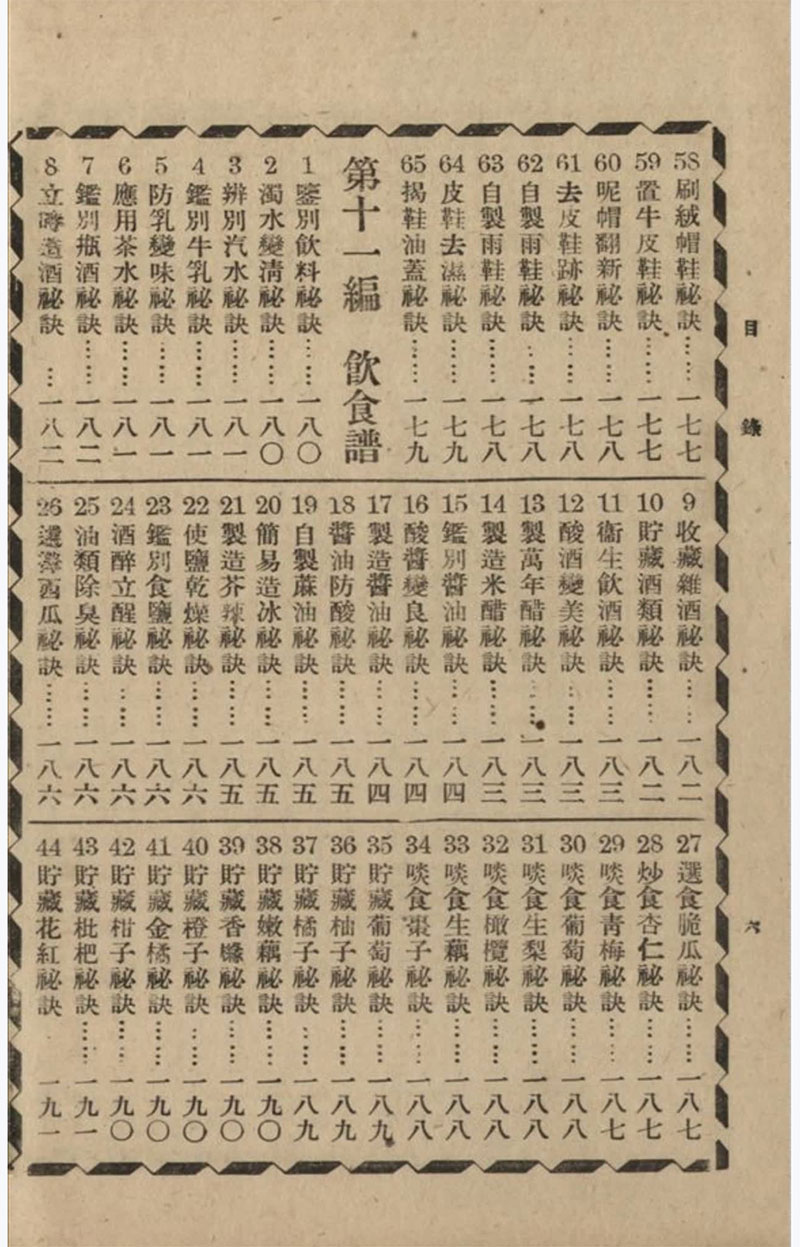 目錄
六
58 刷絨帽鞋祕訣……一七七
59 置牛皮鞋祕訣……一七七
60 呢帽翻新祕訣……一七八
61 去皮鞋跡祕訣……一七八
62 自製雨鞋祕訣……一七八
63 自製雨鞋祕訣……一七八
64 皮鞋去滋祕訣……一七九
65 揭鞋油蓋祕訣……一七九
第十一編 飲食譜
1 鑒別飲料祕訣……一八〇
2 濁水變清祕訣……一八〇
3 辨別汽水祕訣……一八一
4 鑑別牛乳祕訣……一八一
5 防乳變味祕訣……一八一
6 應用茶水祕訣……一八一
7 鑑別瓶酒祕訣……一八二
8 立時造酒祕訣…一八二
9 收藏雜酒祕訣……一八二
10 貯藏酒類祕訣……一八二
11 衞生飲酒祕訣……一八三
12 酸酒變美祕訣……一八三
13 製萬年醋祕訣……一八三
14 製造米醋祕訣……一八三
15 鑑別醬油祕訣……一八四
16 酸醬變良祕訣……一八四
17 製造醬油祕訣……一八四
18 醬油防酸祕訣……一八五
19 自製蔴油祕訣……一八五
20 簡易造冰祕訣……一八五
21 製造芥辣祕訣……一八五
22 使鹽乾燥祕訣……一八六
23 鑑別食鹽祕訣……一八六
24 酒醉立醒祕訣……一八六
25 油類除臭祕訣……一八六
26 選西瓜祕訣……一八六
27 選食脆瓜祕訣……一八七
28 炒食杏仁祕訣……一八七
29 啖食青梅祕訣……一八七
30 啖食葡萄祕訣……一八八
31 啖食生梨祕訣……一八八
32 啖食橄欖祕訣……一八八
33 啖食生藕祕訣……一八八
34 啖食棗子祕訣……一八八
35 貯藏葡萄祕訣……一八九
36 貯藏柚子祕訣……一八九
37 貯藏橘子祕訣……一八九
38 貯藏嫩藕祕訣……一九〇
39 貯藏香櫞祕訣……一九〇
40 貯藏橙子祕訣……一九〇
41 貯藏金橘祕訣……一九〇
42 貯藏柑子祕訣……一九〇
43 貯藏枇杷祕訣……一九一
44 貯藏花紅祕訣……一九一